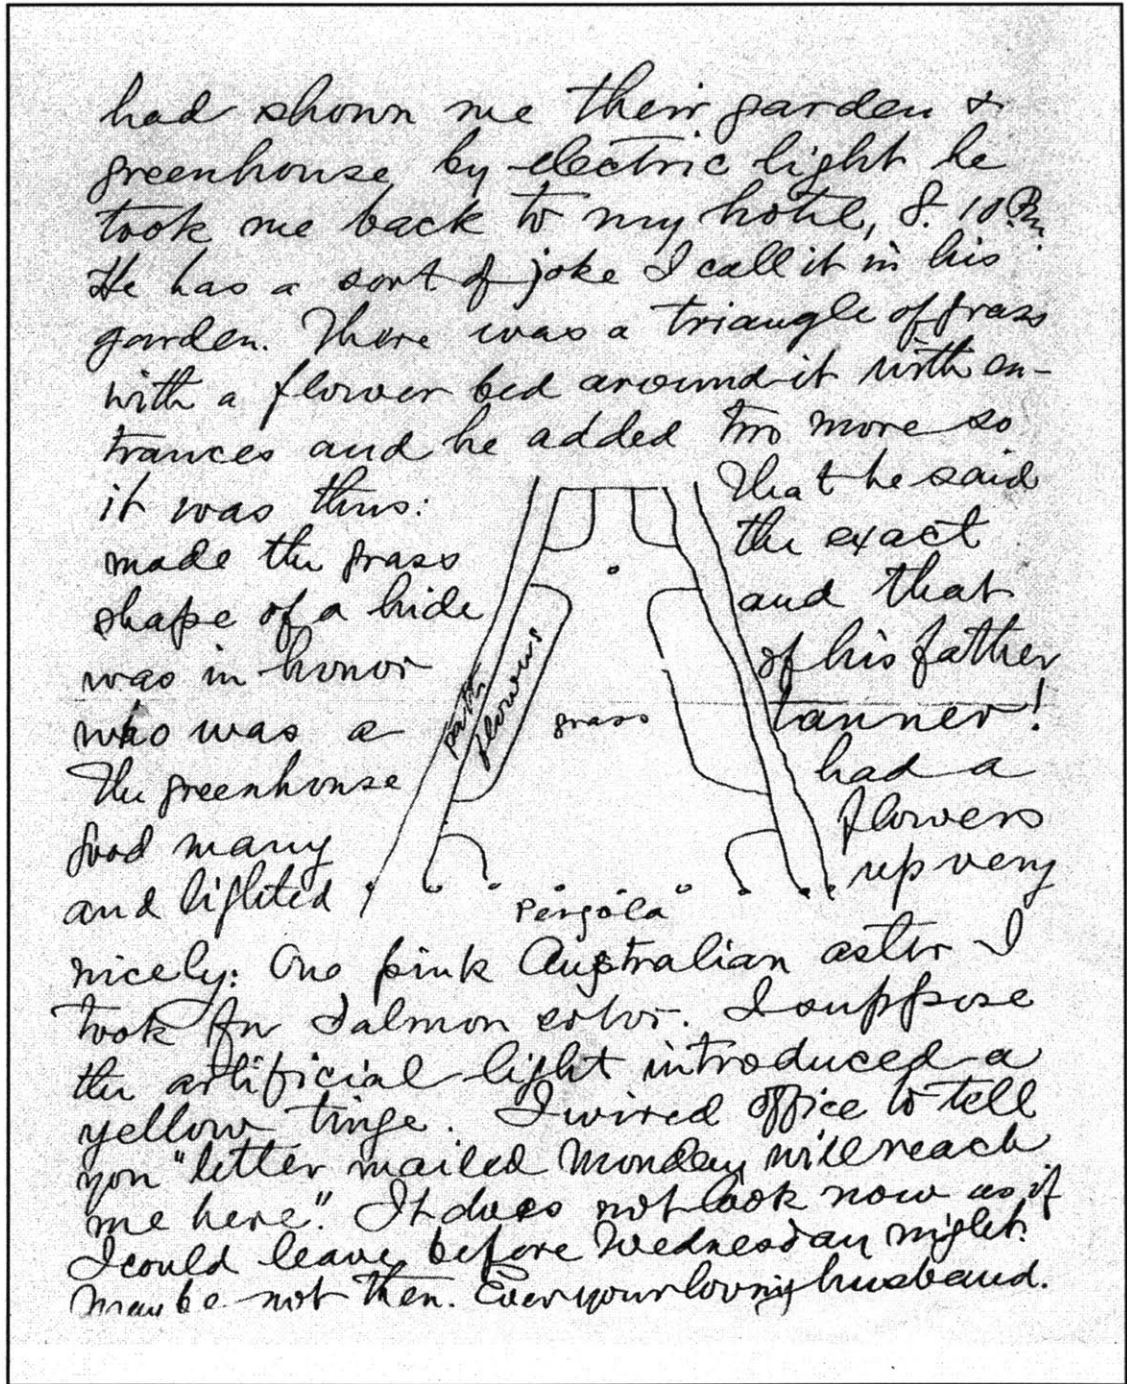 had shown me their garden &
greenhouse by electric light he
took me back to my hotel, 8.10 P.M.
He has a sort of joke I call it in his
garden. There was a triangle of grass
with a flower bed around it with en-
trances and he added two more so
it was thus: that he said
made the grass the exact
shape of a hide and that
was in honor of his father
who was a tanner!
The greenhouse had a
good many flowers
and lighted up very
path
flowers
grass
Pergola
nicely: One pink Australian aster I
took for Salmon color. I suppose
the artificial light introduced a
yellow tinge. I wired office to tell
you "letter mailed Monday will reach
me here". It does not look now as if
I could leave before Wednesday night.
Maybe not then. Ever your loving husband.